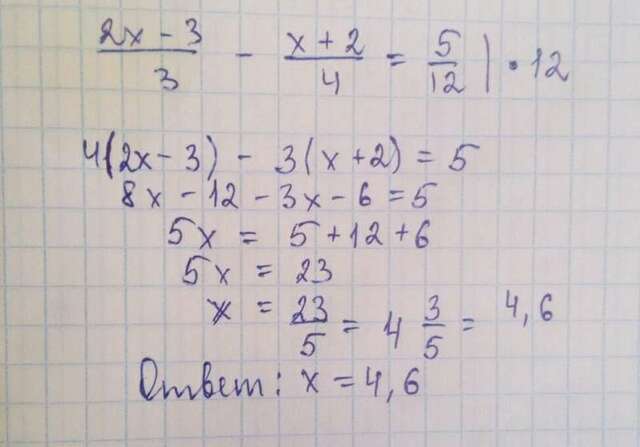 (2x - 3)/3 - (x + 2)/4 = 5/12 | · 12
4(2x - 3) - 3(x + 2) = 5
8x - 12 - 3x - 6 = 5
5x = 5 + 12 + 6
5x = 23
x = 23/5 = 4 3/5 = 4,6
Ответ: x = 4,6